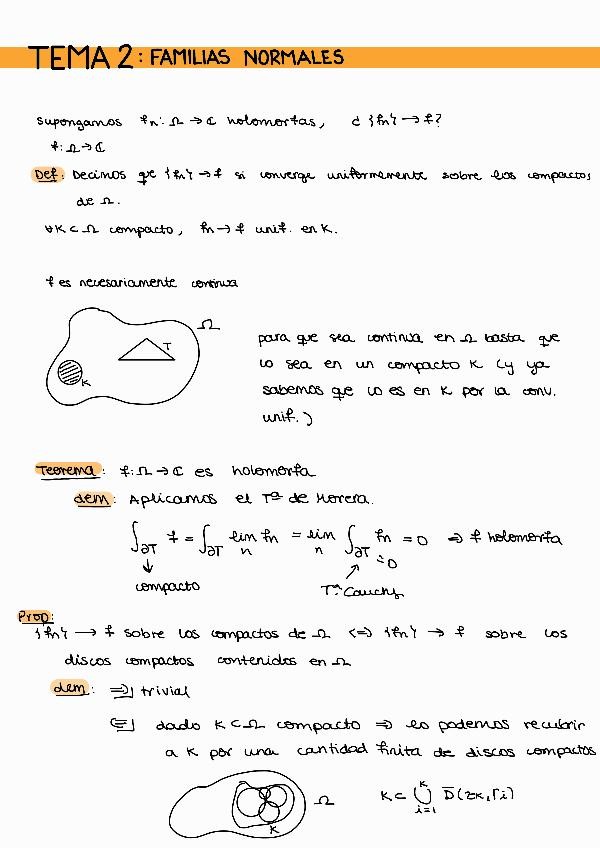 TEMA 2: FAMILIAS NORMALES
Supongamos fn: Ω → ℂ holomorfas, ¿ {fn} → f?
f: Ω → ℂ
Def: Decimos que {fn} → f si converge uniformemente sobre los compactos
de Ω.
∀K ⊂ Ω compacto, fn → f unif. en K.
f es necesariamente continua
Ω
T
K
para que sea continua en Ω basta que
lo sea en un compacto K (y ya
sabemos que lo es en K por la conv.
unif.)
Teorema: f: Ω → ℂ es holomorfa
dem: Aplicamos el Tª de Morera.
∫∂T f = ∫∂T lim n fn = lim n ∫∂T fn = 0 ⇒ f holomorfa
=0
compacto
Tª Cauchy
Prop:
{fn} → f sobre los compactos de Ω ⇔ {fn} → f sobre los
discos compactos contenidos en Ω
dem: ⇒] trivial
⇐] dado K ⊂ Ω compacto ⇒ lo podemos recubrir
a K por una cantidad finita de discos compactos
Ω
K
K ⊂ ⋃ i=1 K D̅(zk, ri)